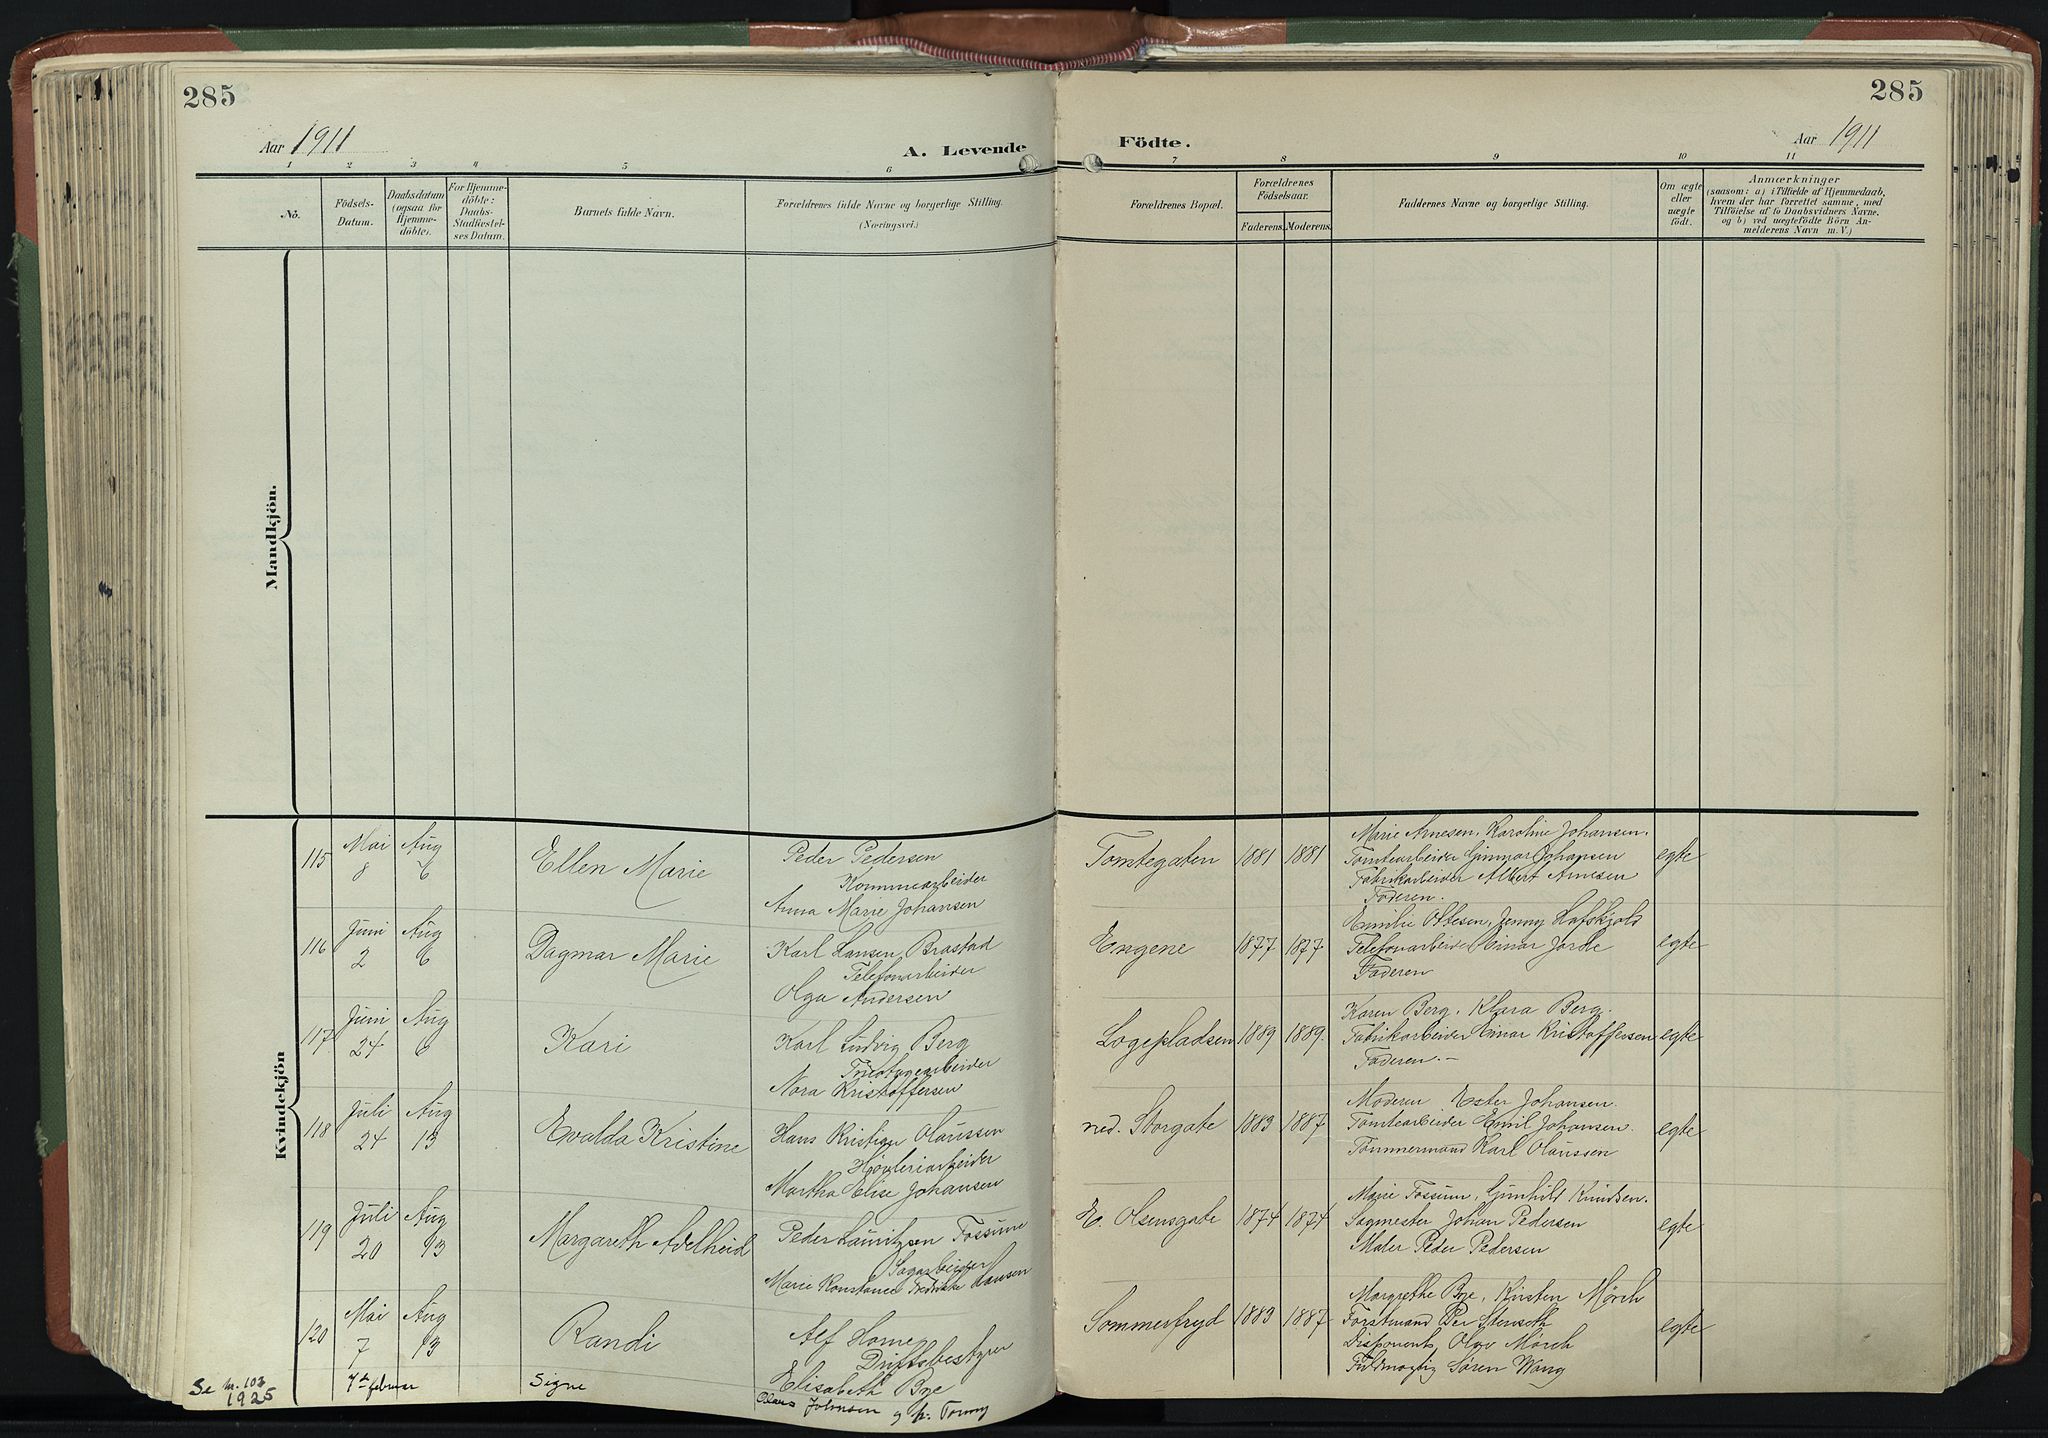 285
285
Aar 1911
A. Levende
Födte.
Aar 1911
1
2
3
4
5
6
7
8
9
10
11
No.
Födsels-
Datum.
Daabsdatum
(ogsaa for
Hjemme-
döbte).
For Hjemme-
döbte:
Daabs-
Stadfæstel-
ses Datum.
Barnets fulde Navn.
Forældrenes fulde Navne og borgerlige Stilling.
(Næringsvei.)
Forældrenes Bopæl.
Forældrenes
Födselsaar.
Faderens.
Moderens.
Faddernes Navne og borgerlige Stilling.
Om ægte
eller
uægte
født.
Anmærkninger
(saasom: a) i Tilfælde af Hjemmedaab,
hvem der har forrettet samme, med
Tilföielse af to Daabsvidners Navne,
og b) ved uegtefödte Börn An-
melderens Navn m. V.)
Mandkjön.
Kvindekjön
115
Mai
8
Aug
6
Ellen Marie
Peder Pedersen
Anna Marie Johansen
Tomtegaten
1881
1881
Marie Arnesen, Karoline Johansen.
Tomtearbeider Gunnar Johansen
Fabrikarbeider Albert Arnesen
Faderen.
egte
116
Juni
2
Aug
6
Dagmar Marie
Karl Lausen Brastad
Telefonarbeider
Olga Andersen
Engene
1877
1877
Emilie Ottesen, Jenny Hafskjold
Telefonarbeider Einar Jorde
Faderen
egte
117
Juni
24
Aug
6
Kari
Karl Ludvig Berg
Tricotagearbeider
Nora Kristoffersen
Logepladsen
1889
1889.
Karen Berg, Klara Berg.
Fabrikarbeider Einar Kristoffersen
Faderen.—
egte
118
Juli
24
Aug
13
Evalda Kristine
Hans Kristian Olaussen
Høvleriarbeider
Martha Elise Johansen
ned. Storgate
1883
1887
Moderen Ester Johansen.
Tomtearbeider Emil Johansen.
Tømmermand Karl Olaussen
egte
119
Juli
20
Aug
13
Margareth Adelheid
Peder Lauritzen Fossum
Sagarbeider
Marie Konstance Fredrikke Hansen
E. Olsensgate
1874
1874
Marie Fossum, Gunhild Knudsen.
Sagmester Johan Pedersen
Maler Peder Pedersen
egte
120
Mai
7
Aug
13
Randi
Alf Horne
Driftsbestyrer
Elisabeth Bye
Sommerfryd
1883
1887
Margrethe Bye, Kirsten Mørch
Forstmand Per Stenseth
Disponent Olav Mørch
Fuldmægtig Søren Wang
egte
Se nr. 103
1925
7de februar
Signe
Johnsen og h.